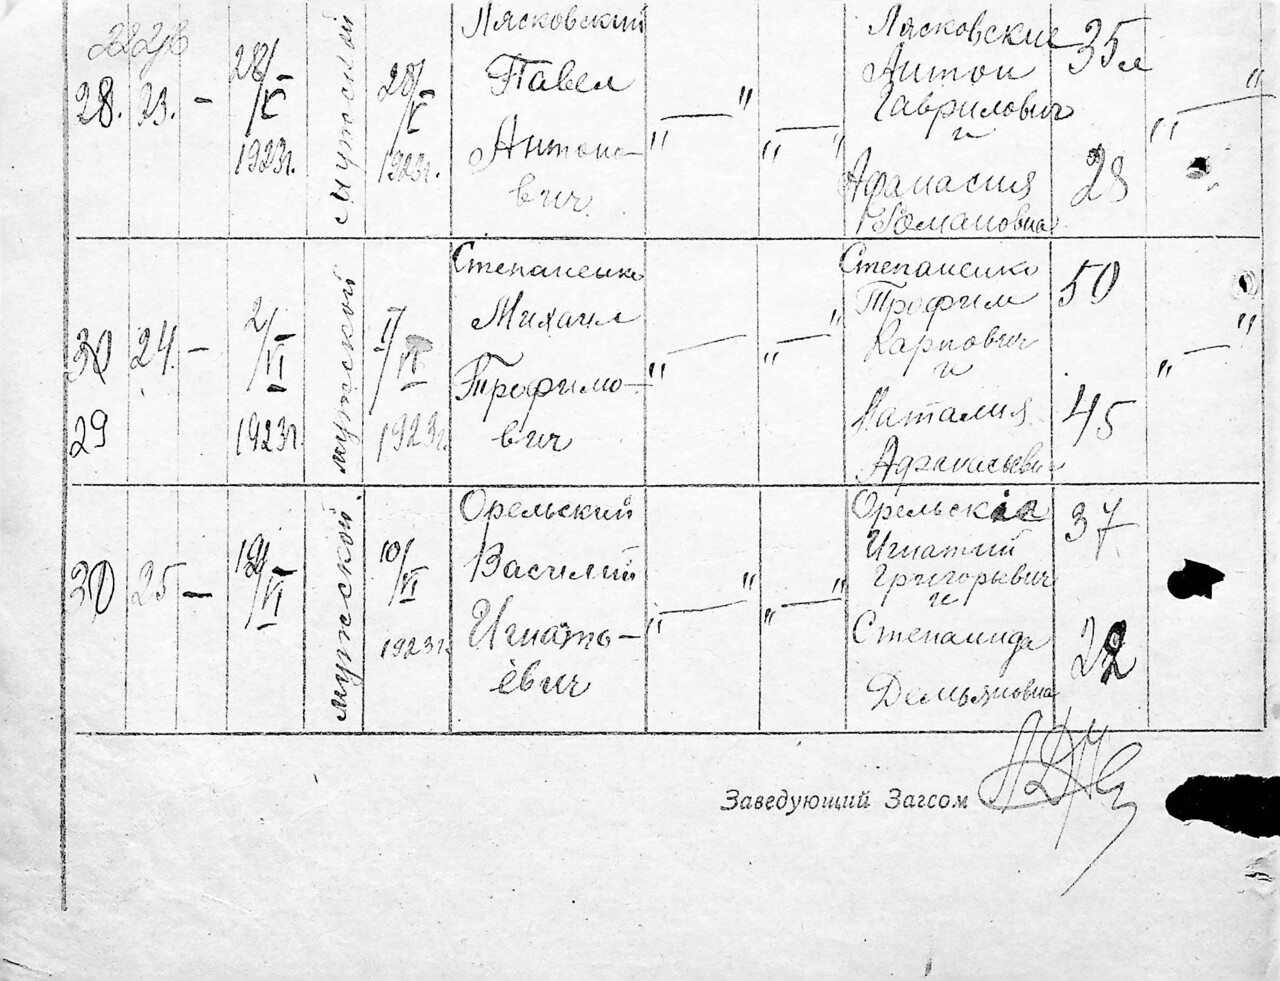 28. 23. — 28/V 1923г. мужской 28/V 1923г.
Лясковский
Павел
Антоно-
вич
" — " " — "
Лясковские
Антон
Гаврилович
и
Афанасия
Романовна
35 л
28
" — "
30 24. — 2/VI 1923г. мужской /VI 1923г.
29
Степаненко
Михаил
Трофимо-
вич
" — " " — "
Степаненко
Трофим
Карпович
и
Наталия
50
45
" — "
30 25 — /VI мужской 10/VI 1923г.
Орельский
Василий
Игнать-
евич
" — " " — "
Игнатий
Григорьевич
и
Степанида
Демьяновна
37
22
Заведующий Загсом